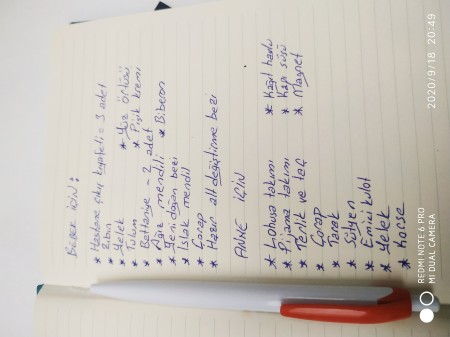 BEBEK İÇİN:
* Hastane çıkış kıyafeti = 3 adet
* Zıbın
* Yelek
* Tulum
* Battaniye - 2 adet
* Ağız mendili
* Yeni doğan bezi
* Islak mendil
* Çorap
* Hazır alt değiştirme bezi
* Yüz örtüsü
* Pişik kremi
* Biberon
ANNE İÇİN
* Lohusa takımı
* Pijama takımı
* Terlik ve taç
* Çorap
* Tarak
* Sütyen
* Emici külot
* Yelek
* Korse
* Kağıt havlu
* Kapı süsü
* Magnet
REDMI NOTE 6 PRO
MI DUAL CAMERA
2020/9/18 20:49